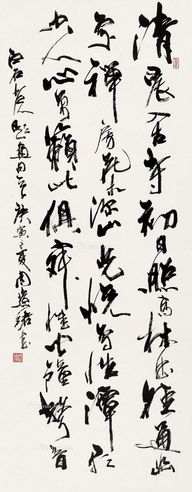 清晨入古寺初日照高林竹徑通幽
處禪房花木深山光悅鳥性潭影
空人心萬籟此俱寂惟聞鐘磬音
庚寅之夏周